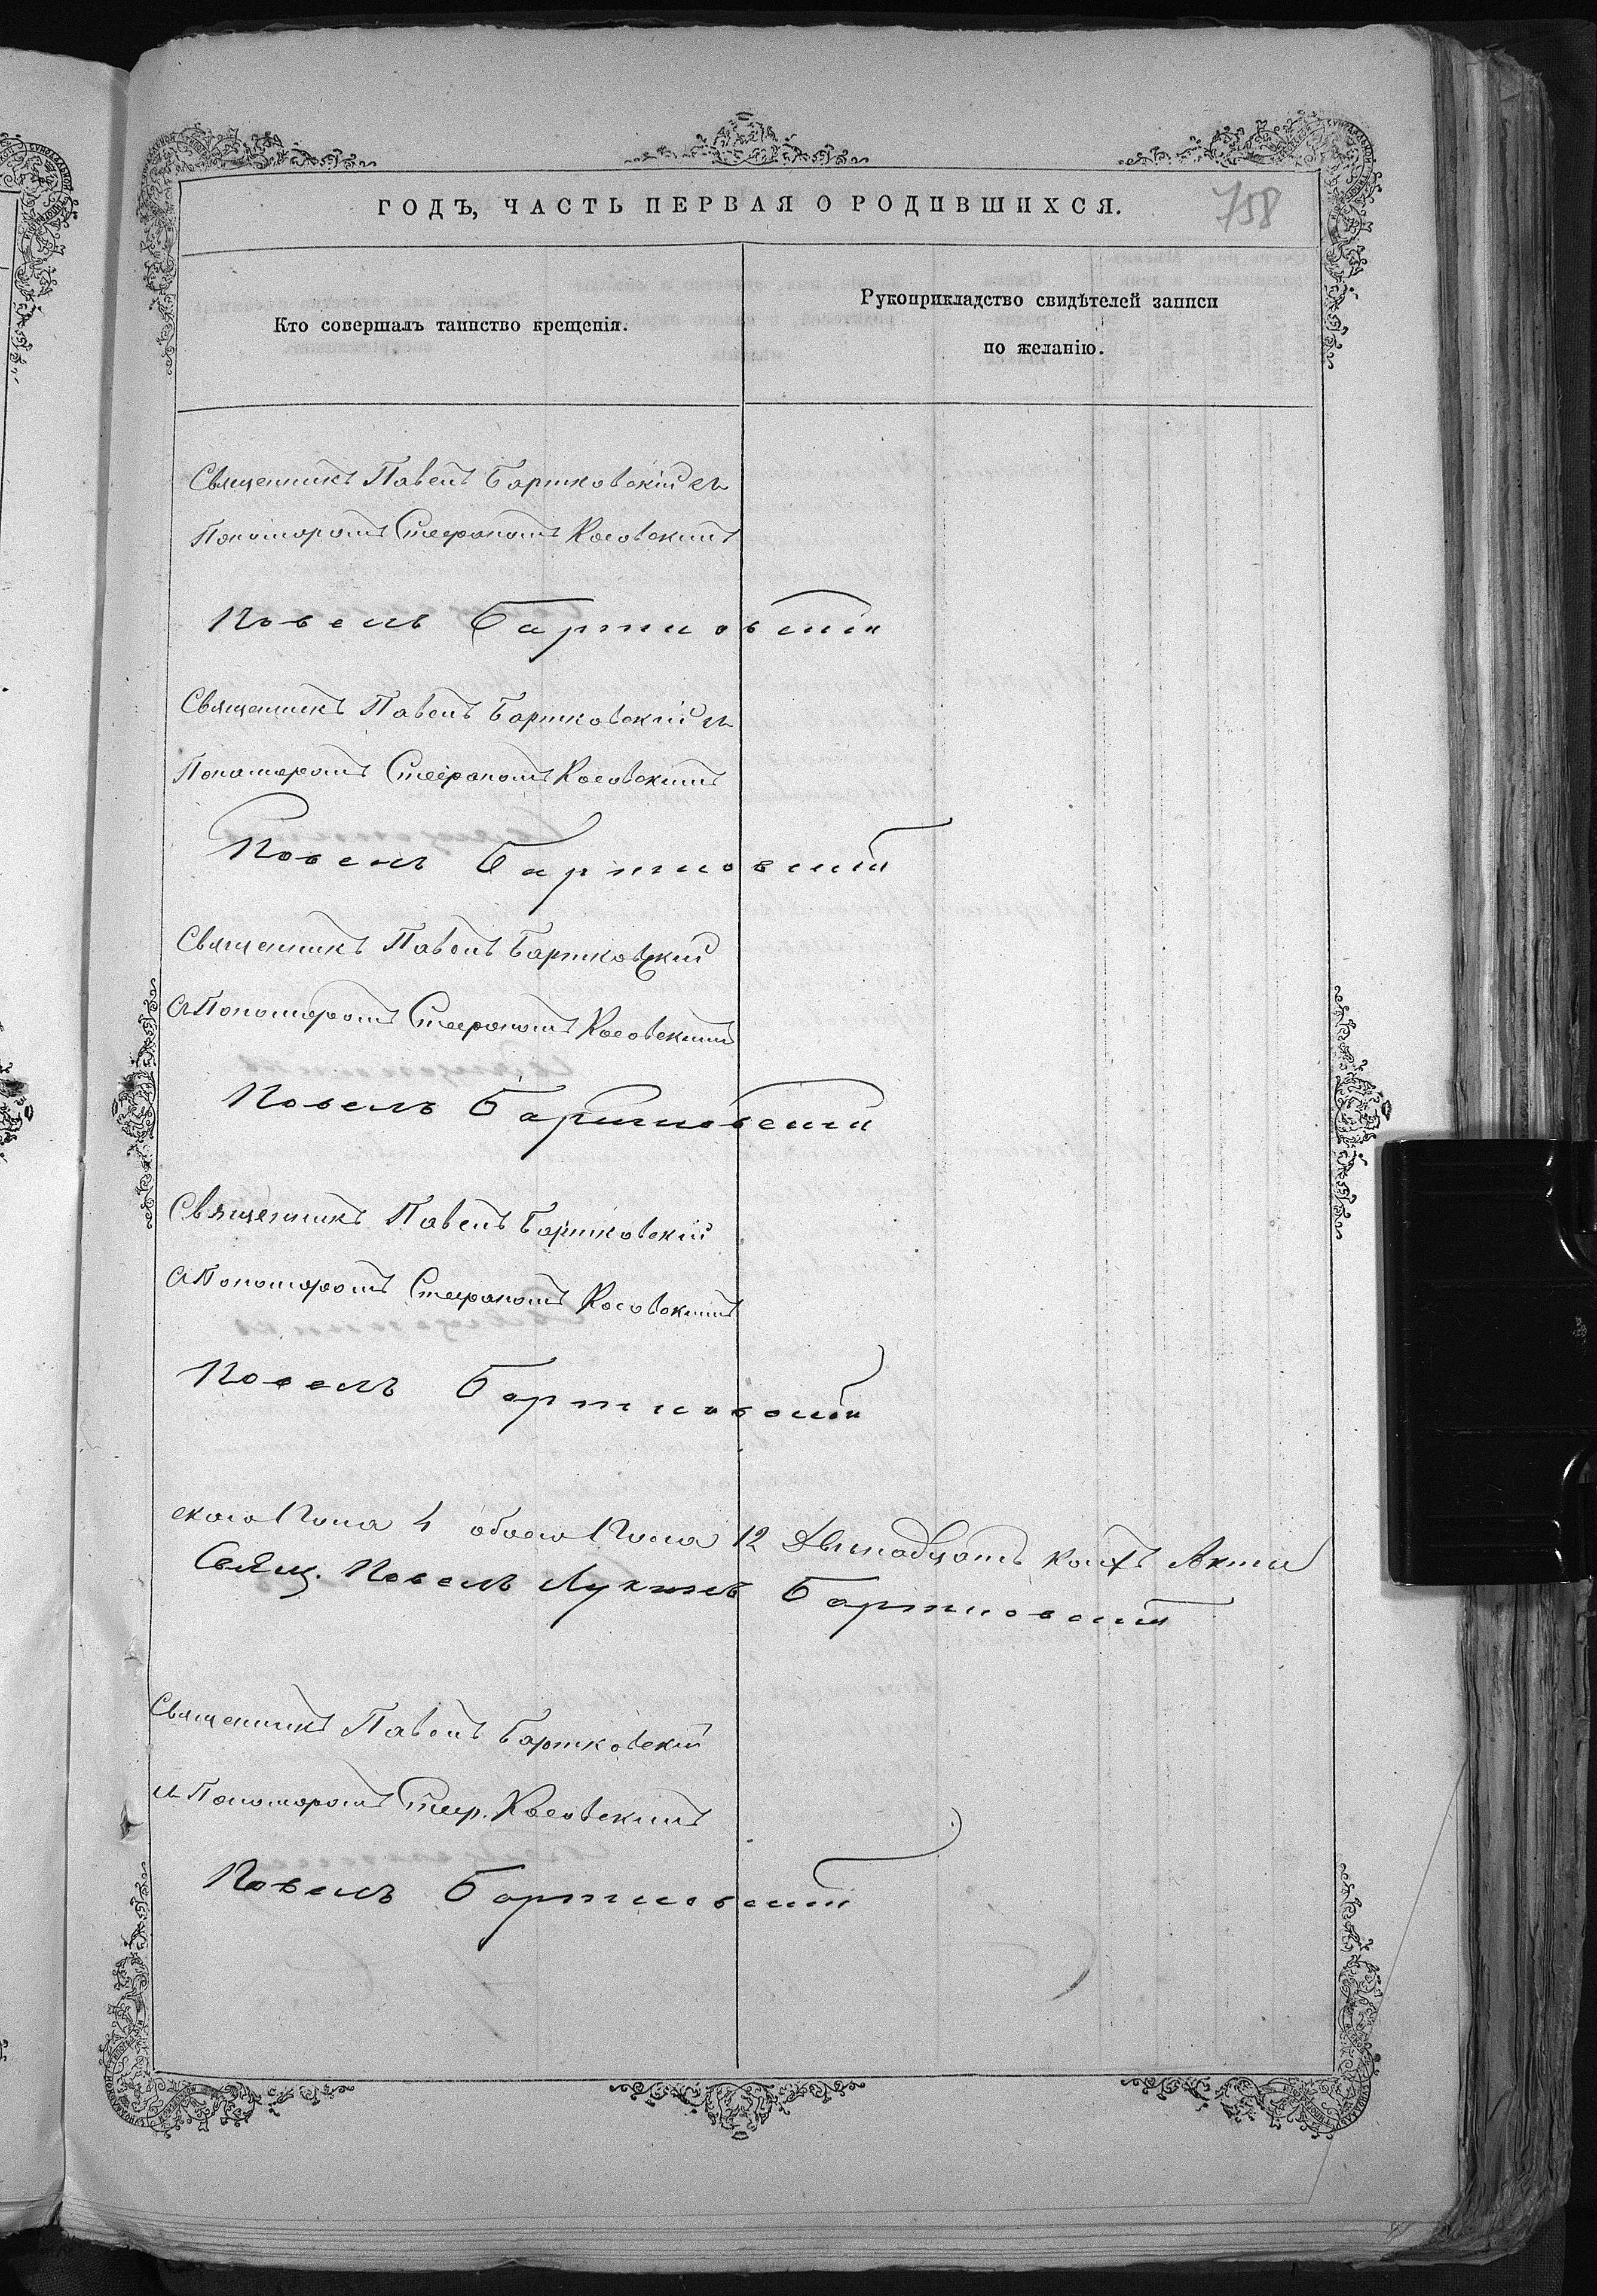 ГОДЪ, ЧАСТЬ ПЕРВАЯ О РОДИВШИХСЯ.
758
Кто совершалъ таинство крещенія.
Рукоприкладство свидѣтелей записи
по желанію.
Священникъ Павелъ Бартковскій съ
Пономаромъ Стефаномъ Косовскимъ
Павелъ Бартковскій
Священникъ Павелъ Бартковскій съ
Пономаромъ Стефаномъ Косовскимъ
Павелъ Бартковскій
Священникъ Павелъ Бартковскій
съ Пономаромъ Стефаномъ Косовскимъ
Павелъ Бартковскій
Священникъ Павелъ Бартковскій
съ Пономаромъ Стефаномъ Косовскимъ
Павелъ Бартковскій
скаго Пола 4 обоего Пола 12 Двенадцать
Свящ. Павелъ Лукинъ Бартковскій
Священникъ Павелъ Бартковскій
съ Пономаромъ Стеф. Косовскимъ
Павелъ Бартковскій